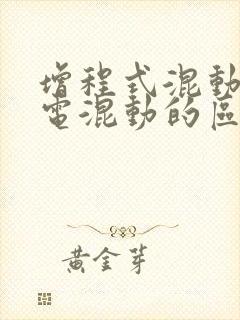 增程式混動
電混動的區
黃金芽